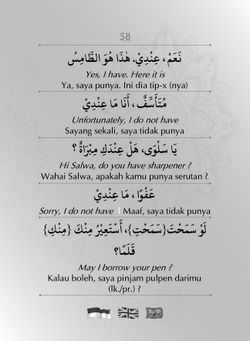 58
نَعَمْ، عِنْدِيْ. هٰذَا هُوَ الطَّامِسُ
Yes, I have. Here it is
Ya, saya punya. Ini dia tip-x (nya)
مُتَأَسِّفٌ، أَنَا مَا عِنْدِيْ
Unfortunately, I do not have
Sayang sekali, saya tidak punya
يَا سَلْوَى، هَلْ عِنْدَكِ مِبْرَاةٌ؟
Hi Salwa, do you have sharpener ?
Wahai Salwa, apakah kamu punya serutan ?
عَفْوًا، مَا عِنْدِيْ
Sorry, I do not have | Maaf, saya tidak punya
لَوْ سَمَحْتَ{سَمَحْتِ}، أَسْتَعِيْرُ مِنْكَ {مِنْكِ}
قَلَمًا؟
May I borrow your pen ?
Kalau boleh, saya pinjam pulpen darimu
(lk./pr.) ?